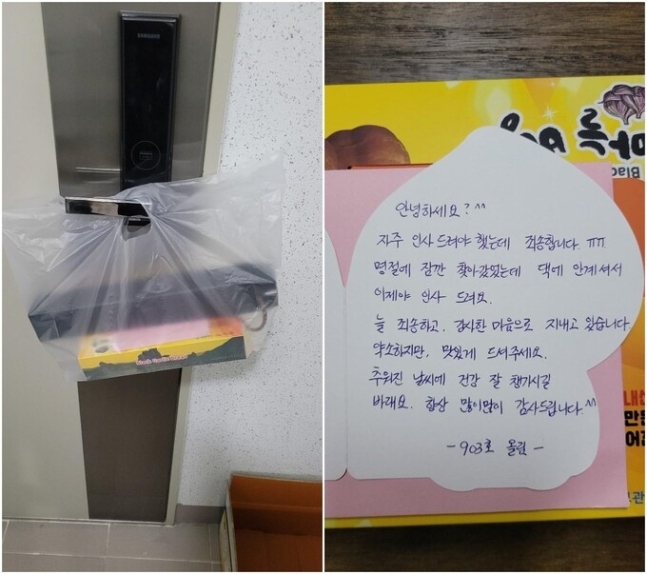 SAMSUNG
Black Garlic
흑
Blac
안녕하세요? ^^
자주 인사드려야 했는데 죄송합니다 ㅠㅠ
명절에 잠깐 찾아갔었는데 댁에 안계셔서
이제야 인사 드려요.
늘 죄송하고, 감사한 마음으로 지내고 있습니다
약소하지만, 맛있게 드셔주세요.
추워진 날씨에 건강 잘 챙기시길
바래요. 항상 많이많이 감사드립니다.^^
- 903호 올림 -
내산
만든
어린
관